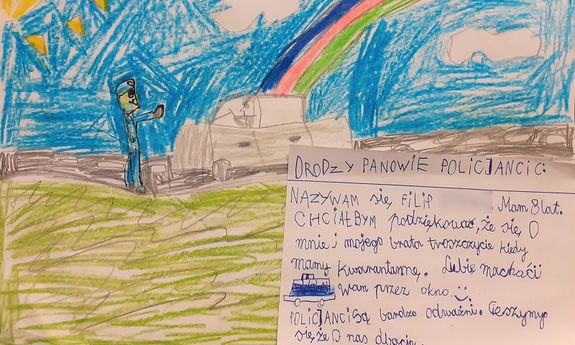 DRODZY PANOWIE POLICJANCI C:
NAZYWAM się FiLIP Mam 8 lat.
CHCIAŁBYM podziękować, że się O
mnie i mojego brata troszczycie kiedy
mamy kwarantannę. Lubię machać
Wam przez okno
POLICJANCI SĄ bardzo odważni. Cieszymy
się że O nas dbacie